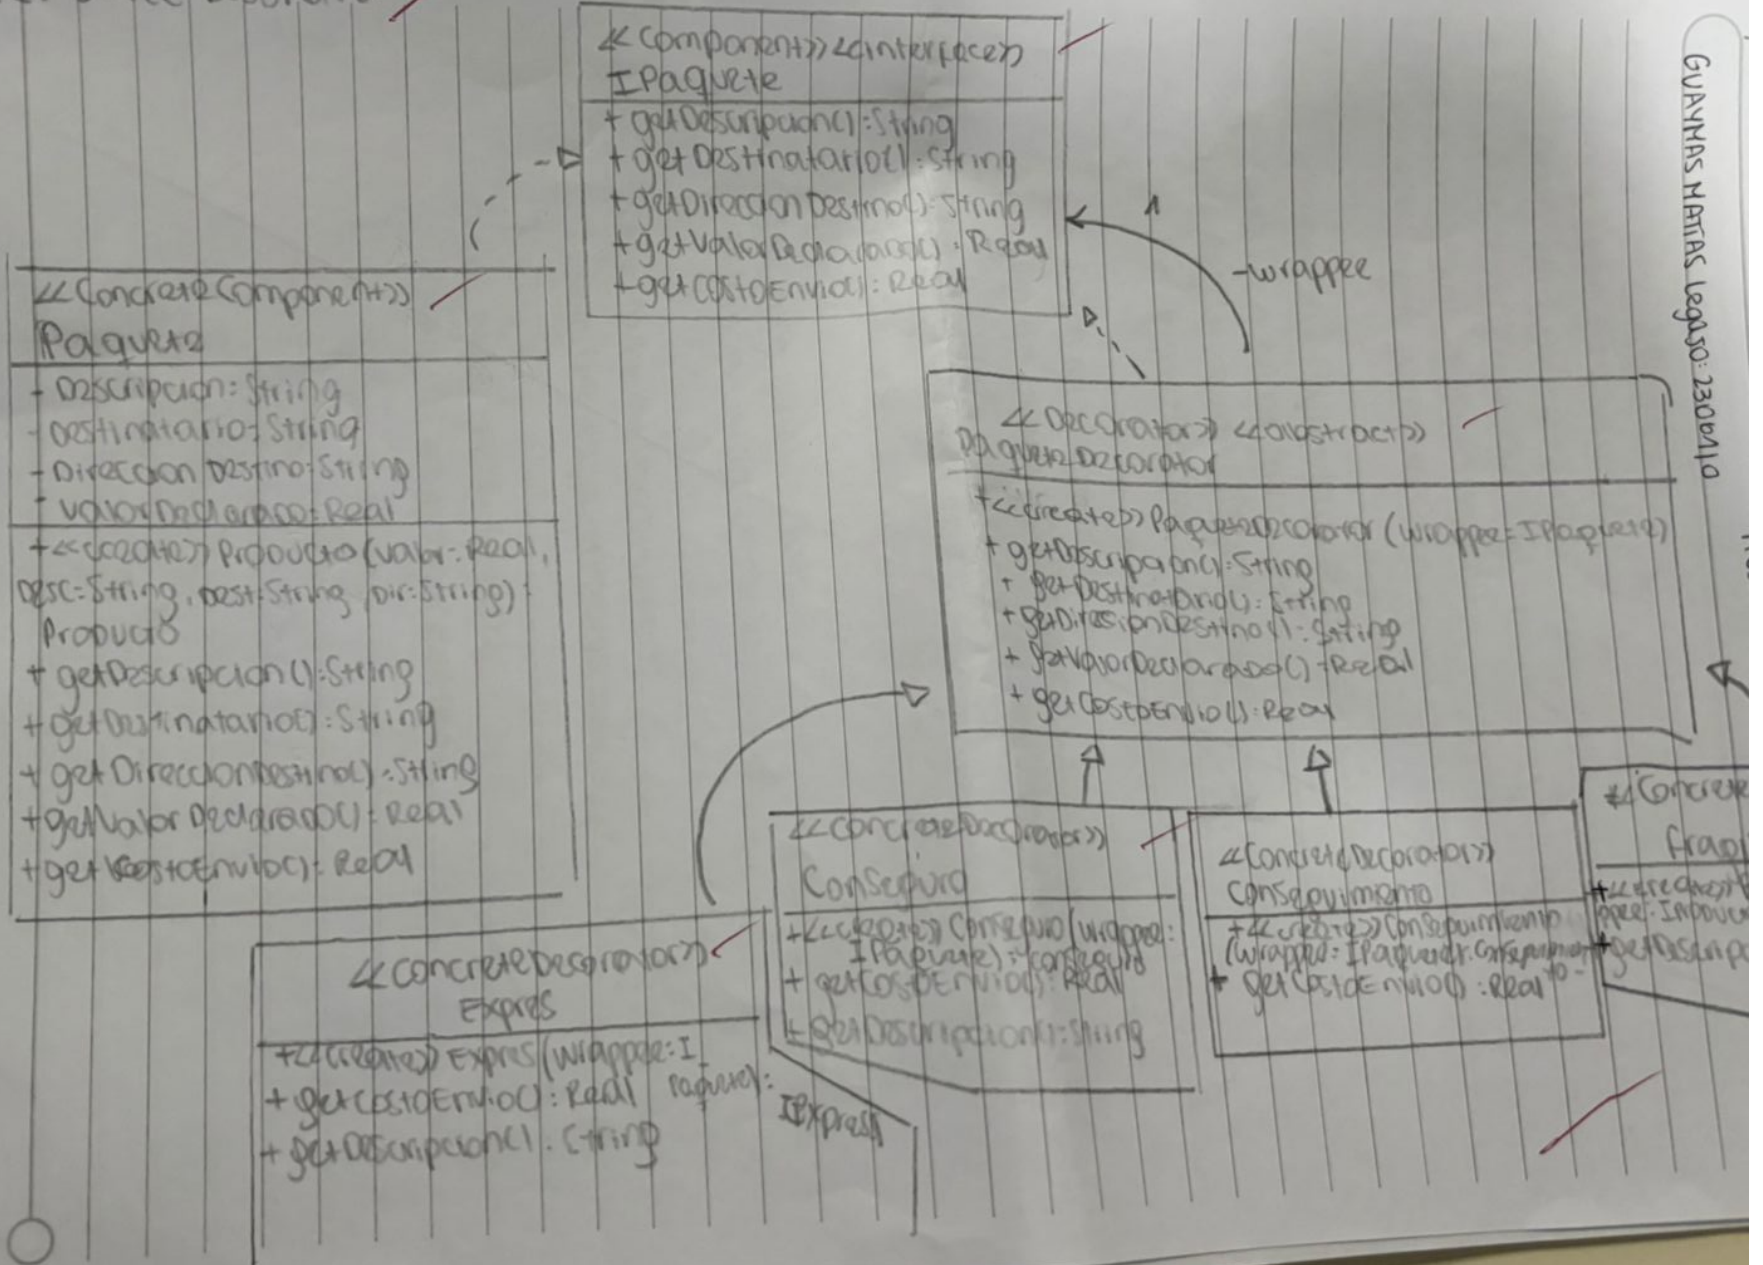 <<Component>> <<interface>>
IPaquete
+ getDescripcion(): String
+ getDestinatario(): String
+ getDireccionDestino(): String
+ getValorDeclarado(): Real
+ getCostoEnvio(): Real
1
-wrappee
GUAYMAS MATIAS Legajo: 2306410
<<Concrete Component>>
Paquete
- Descripcion: String
- Destinatario: String
- Direccion Destino: String
- ValorDeclarado: Real
+ <<create>> Producto (valor: Real,
Desc: String, Dest: String, Dir: String):
Producto
+ getDescripcion(): String
+ getDestinatario(): String
+ getDireccionDestino(): String
+ getValorDeclarado(): Real
+ getCostoEnvio(): Real
<<Decorator>> <<abstract>>
PaqueteDecorator
+ <<create>> PaqueteDecorator (wrappee: IPaquete)
+ getDescripcion(): String
+ getDestinatario(): String
+ getDiresionDestino(): String
+ getValorDeclarado(): Real
+ getCostoEnvio(): Real
<<ConcreteDecorator>>
Expres
+ <<create>> Expres (wrappee: I
Paquete):
+ getCostoEnvio(): Real
+ getDescripcion(): String
<<ConcreteDecorator>>
ConSeguro
+ <<create>> ConSeguro (wrappee:
IPaquete): ConSeguro
+ getCostoEnvio(): Real
+ getDescripcion(): String
<<ConcreteDecorator>>
ConSeguimiento
+ <<create>> ConSeguimiento
(wrappee: IPaquete):
+ getCostoEnvio(): Real
<<Concrete
Fragi
+ getDescripc